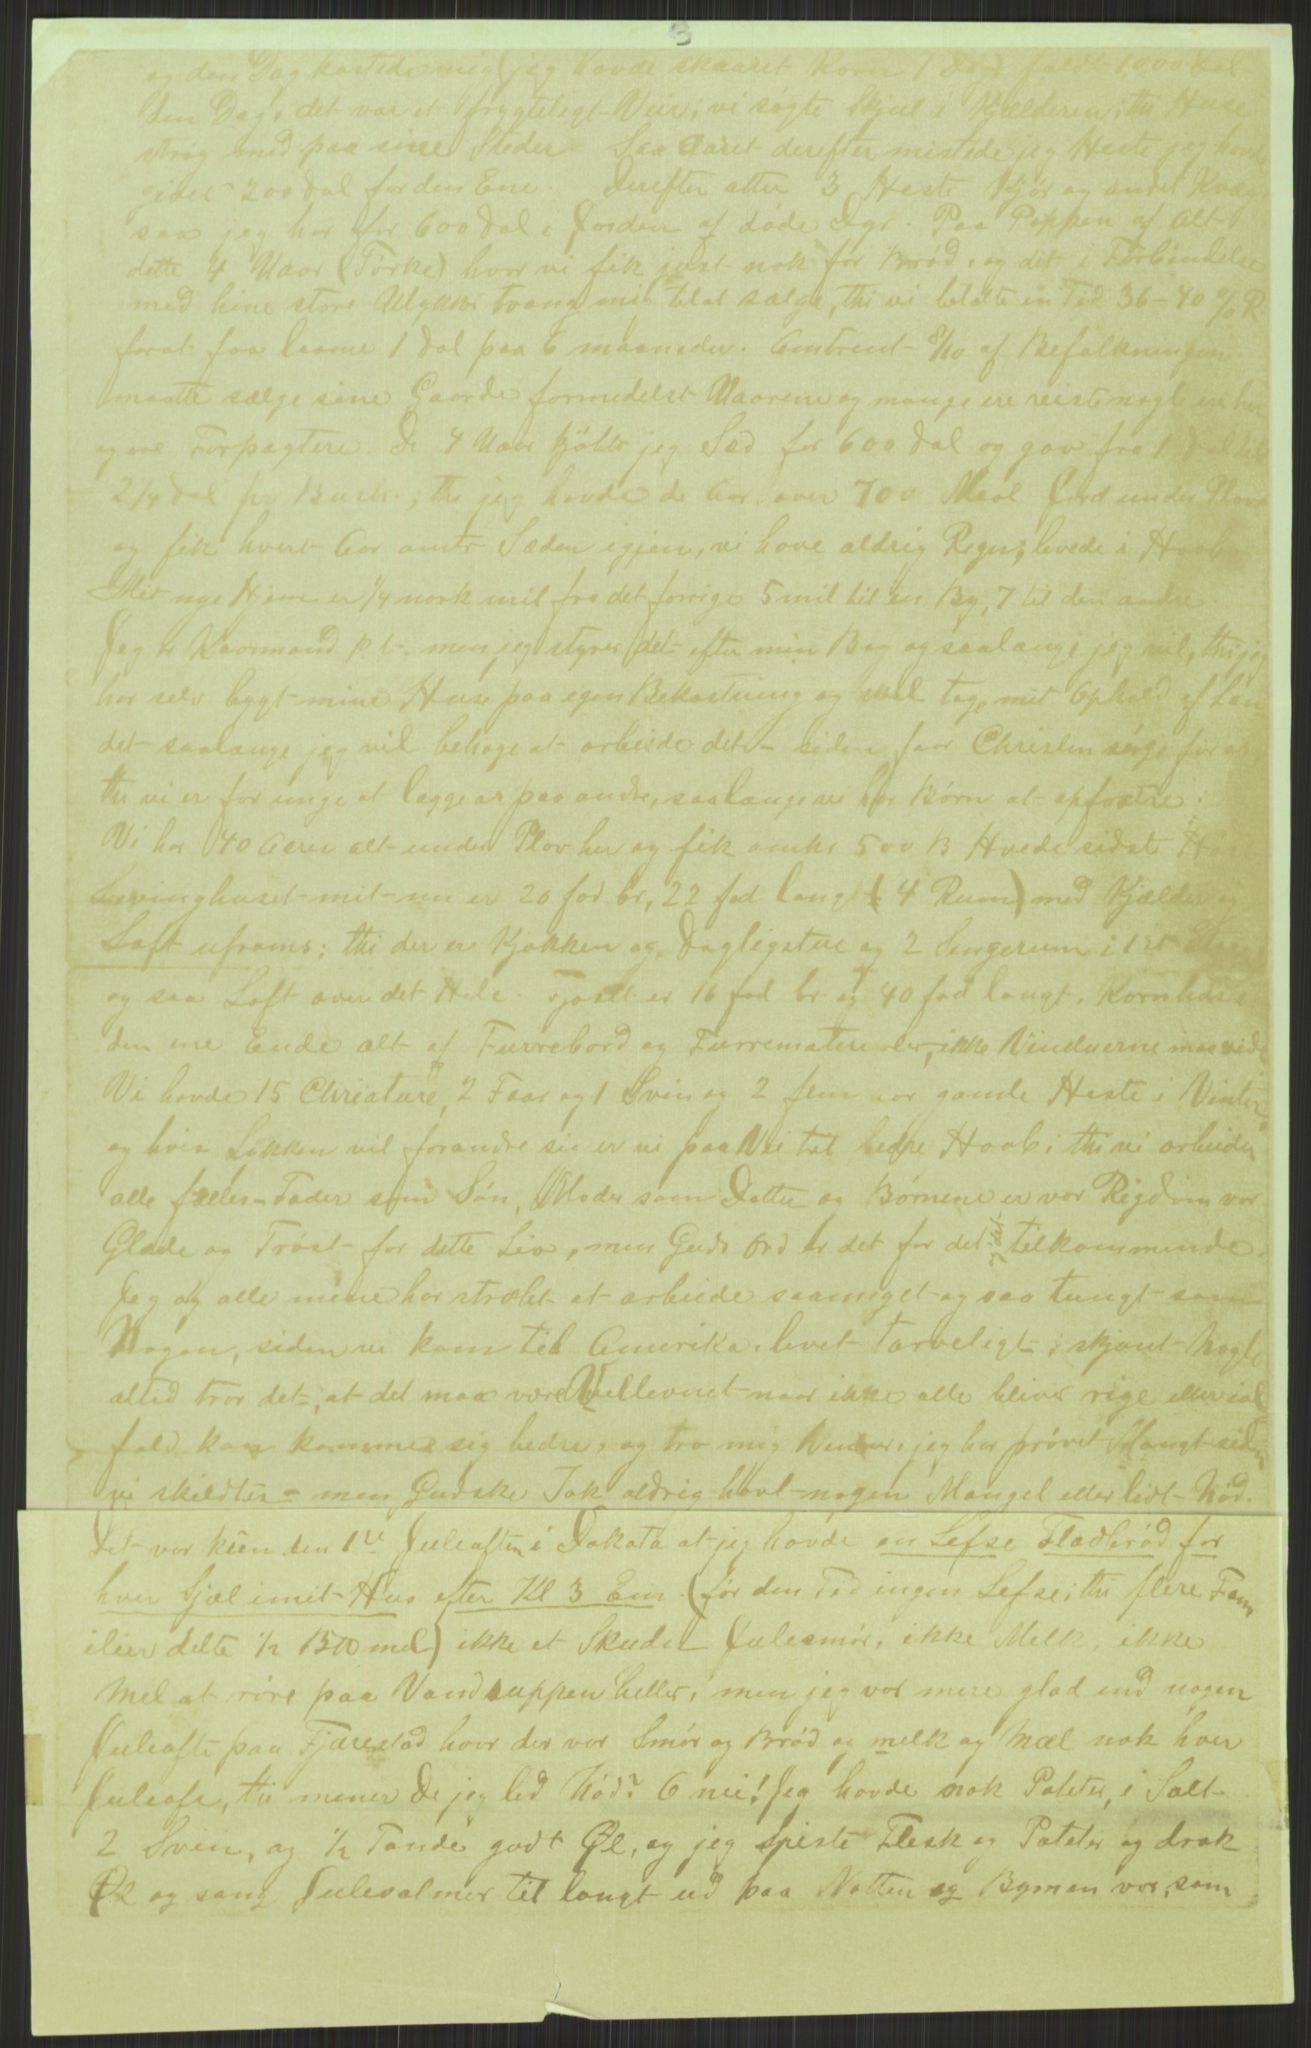 3
og den Dag kostede mig (jeg havde skaaret Korn 1 Dag) fuldt 1,000 Dal
den Dag, det var et frygteligt Veir, vi søgte Skjul i Kjælderen, thi Huse
strøg med paa sine Steder – Saa Aaret derefter mistede jeg Heste jeg havde
givet 200 Dal for den Ene. Derefter atter 3 Heste Kjør og andet Kvæg
saa jeg har for 600 Dal i Jorden af døde Dyr. Paa Toppen af Alt
dette 4 Uaar (Tørke) hvor vi fik just nok for Brød, og det i Forbindelse
med hine store Ulykker tvang mig til at sælge, thi vi betalte en Tid 36–40 % R.
forat faa laane 1 Dal paa 6 maaneder. Omtrent 8/10 af Befolkningen
maatte sælge sine Gaarde formedelst Uaarene og mange ere reiste nogle ere her
og ere Forpagtere. De 4 Uaar kjøbte jeg Sæd for 600 Dal og gav fra 1 Dal til
2 1/4 Dal pr Bush.; thi jeg havde de Aar over 700 Maal Jord under Plov
og fik hvert Aar omtr Sæden igjen, vi have aldrig Regn, levede i Haab
Mit nye Hjem er 1/4 norsk mil fra det forrige 5 mil til en By, 7 til den andre
Jeg er Kaarmand p.t. men jeg styrer det efter min Bog og saalænge jeg vil, thi jeg
har selv bygt mine Huse paa egen Bekostning og skal tage mit Ophold af Lan-
det saalænge jeg vil behage at arbeide det – siden faar Christen sørge for os
thi vi er for unge at lægge os paa andre, saalænge vi har Børn at opfostre.
Vi har 40 Acres alt under Plov her og fik omkr 500 B Hvede sidste Høst
Svinghuset mit nu er 20 fod br, 22 fod langt (4 Rum) med Kjælder og
Loft uframs; thi der er Kjøkken og Dagligstue og 2 Sengerum i 1st Etage
og saa Loft over det Hele. Fjøset er 16 fod br og 40 fod langt, Kornhus i
den ene Ende alt af Furrebord og Furremateriale, ikke Vinduerne
Vi havde 15 Chreature, 2 Faar og 1 Svin og 2 fem aar gamle Heste i Vinter
og hvis Lykken vil forandre sig er vi paa Vei til bedre Haab; thi vi arbeider
alle fælles – Fader som Søn, Moder som Datter og Børnene er vor Rigdom vor
Glæde og Trøst for dette Liv, men Guds Ord er det for det tilkommende.
Jeg og alle mine har stræbt at arbeide saameget og saa tungt som
Nogen, siden vi kom til Amerika, levet tarveligt, skjønt Nogle
altid tror det, at det maa være Vellevnet naar ikke alle bliver rige eller ial-
fald kan komme sig bedre, og tro mig Venner, jeg har prøvet Mangt siden
vi skildtes – men Gudske Tak aldrig havt nogen Mangel eller lidt Nød.
Det var kun den 1ste Juleaften i Dakota at jeg havde en Lefse Fladbrød for
hver Sjæl i mit Hus efter Kl 3 Em. (før den Tid ingen Lefse, thi flere Fam
ilier delte 1/2 B mel) ikke et Skudn Julesmør, ikke Melk, ikke
Mel at røre paa Vandsuppen heller, men jeg var mere glad end nogen
Juleafte paa Fjærestad hvor der var Smør og Brød og melk og Mæl nok hver
Juleaft, thi mener De jeg led Nød? O nei! Jeg havde nok Poteter, i Salt
2 Svin, og 1/2 Tønde godt Øl, og jeg spiste Flesk og Poteter og drak
Øl og sang Julesalmer til langt ud paa Natten og Bymen var, som